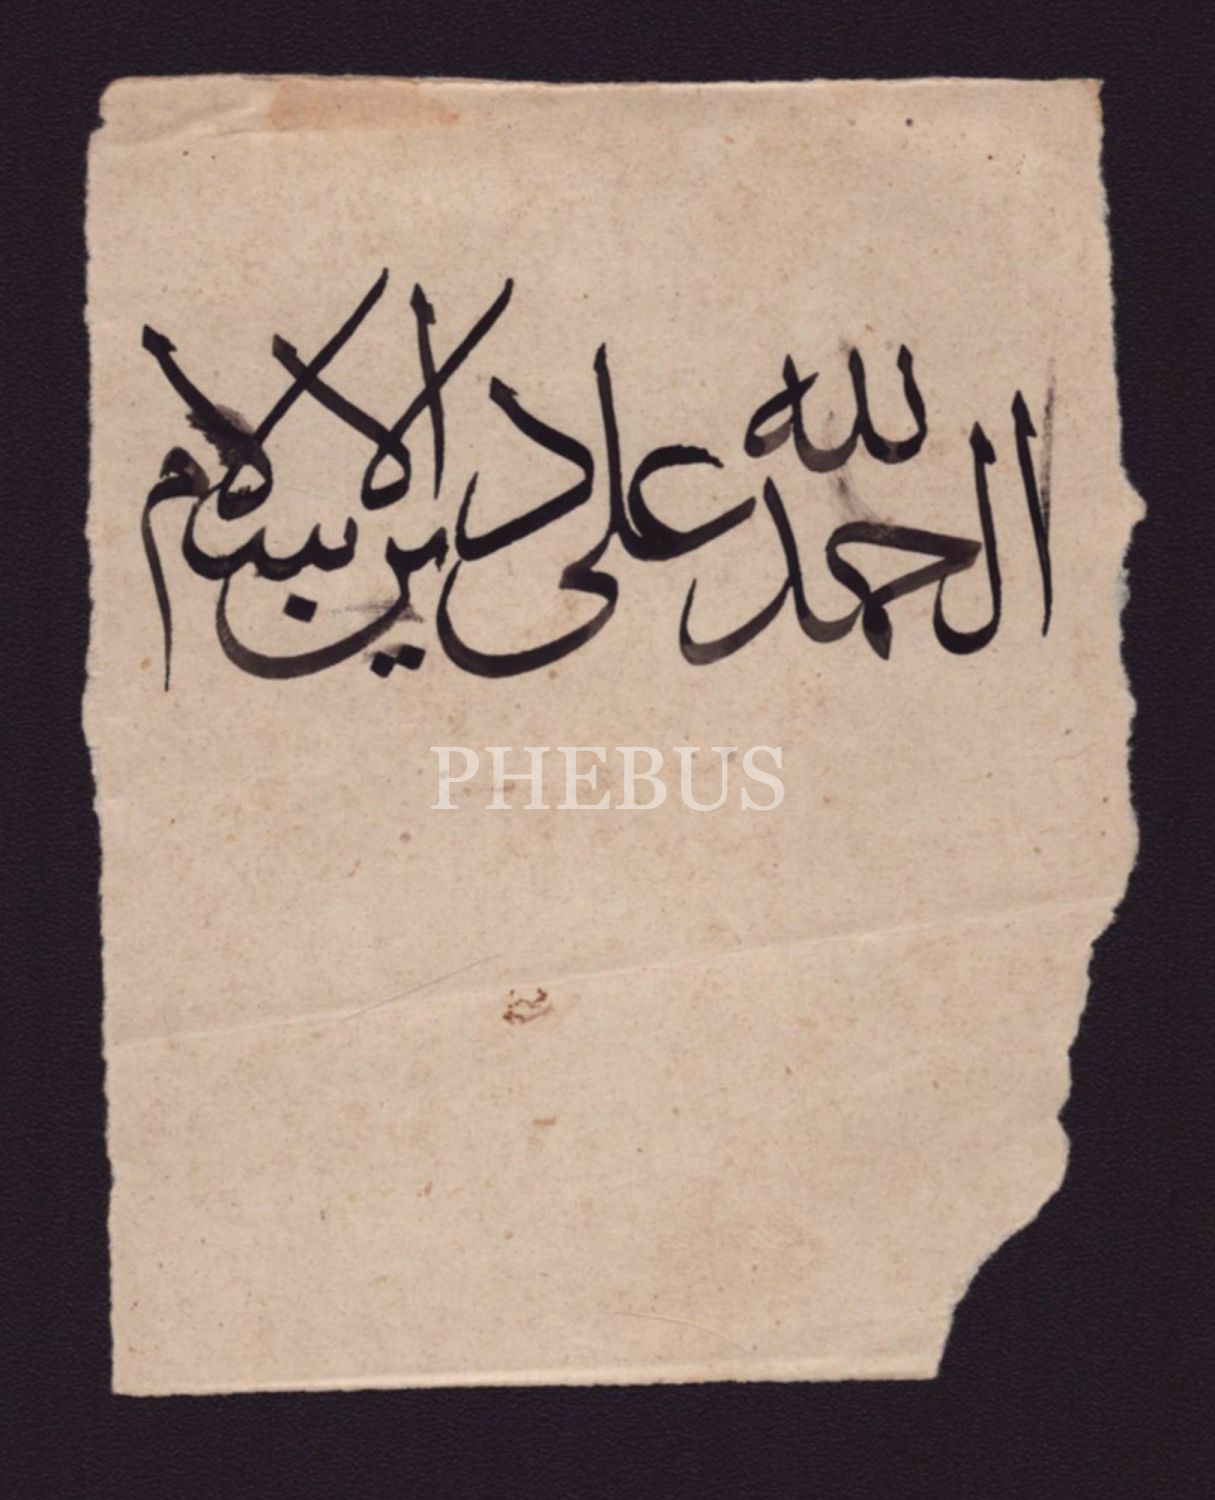 الحمد لله على دين الاسلام
PHEBUS